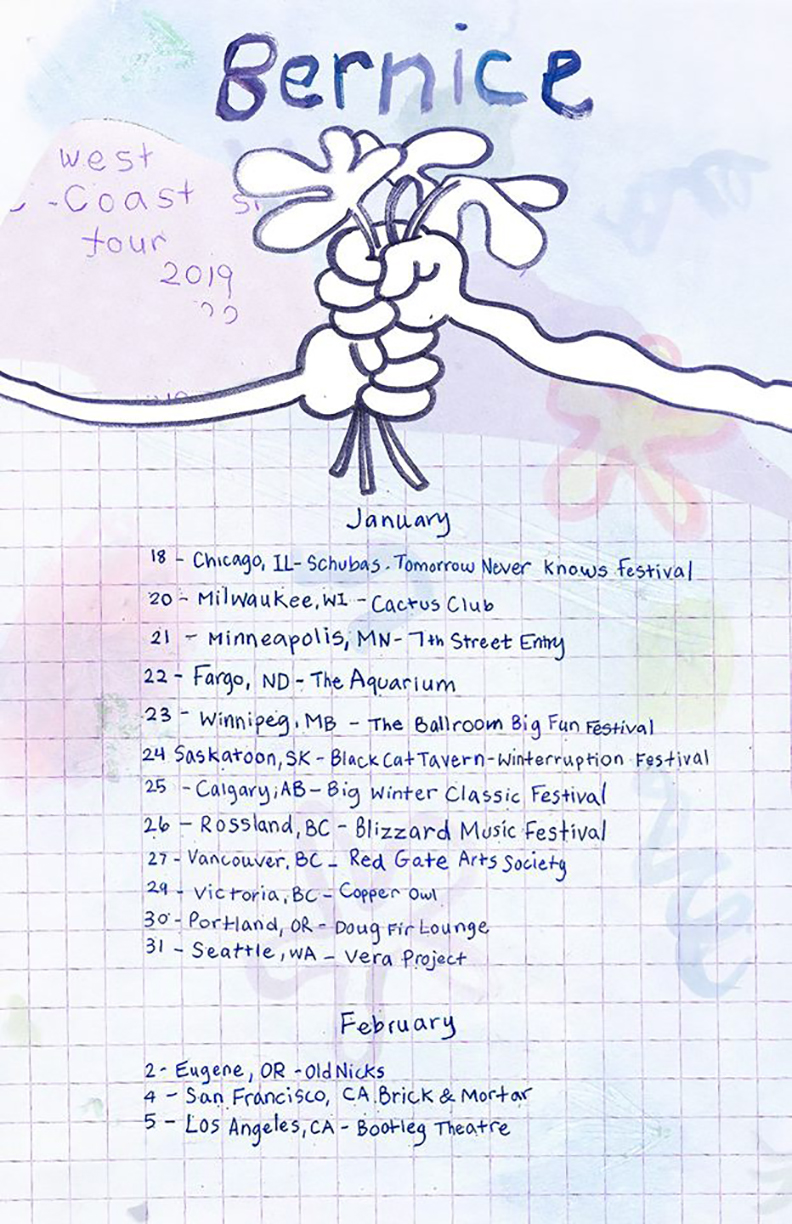 Bernice
west
-Coast
tour
2019
January
18 - Chicago, IL - Schubas. Tomorrow Never Knows Festival
20 - Milwaukee, WI - Cactus Club
21 - Minneapolis, MN - 7th Street Entry
22 - Fargo, ND - The Aquarium
23 - Winnipeg, MB - The Ballroom Big Fun Festival
24 Saskatoon, SK - Black Cat Tavern - Winterruption Festival
25 - Calgary, AB - Big Winter Classic Festival
26 - Rossland, BC - Blizzard Music Festival
27 - Vancouver, BC - Red Gate Arts Society
29 - Victoria, BC - Copper Owl
30 - Portland, OR - Doug Fir Lounge
31 - Seattle, WA - Vera Project
February
2 - Eugene, OR - Old Nicks
4 - San Francisco, CA. Brick & Mortar
5 - Los Angeles, CA - Bootleg Theatre